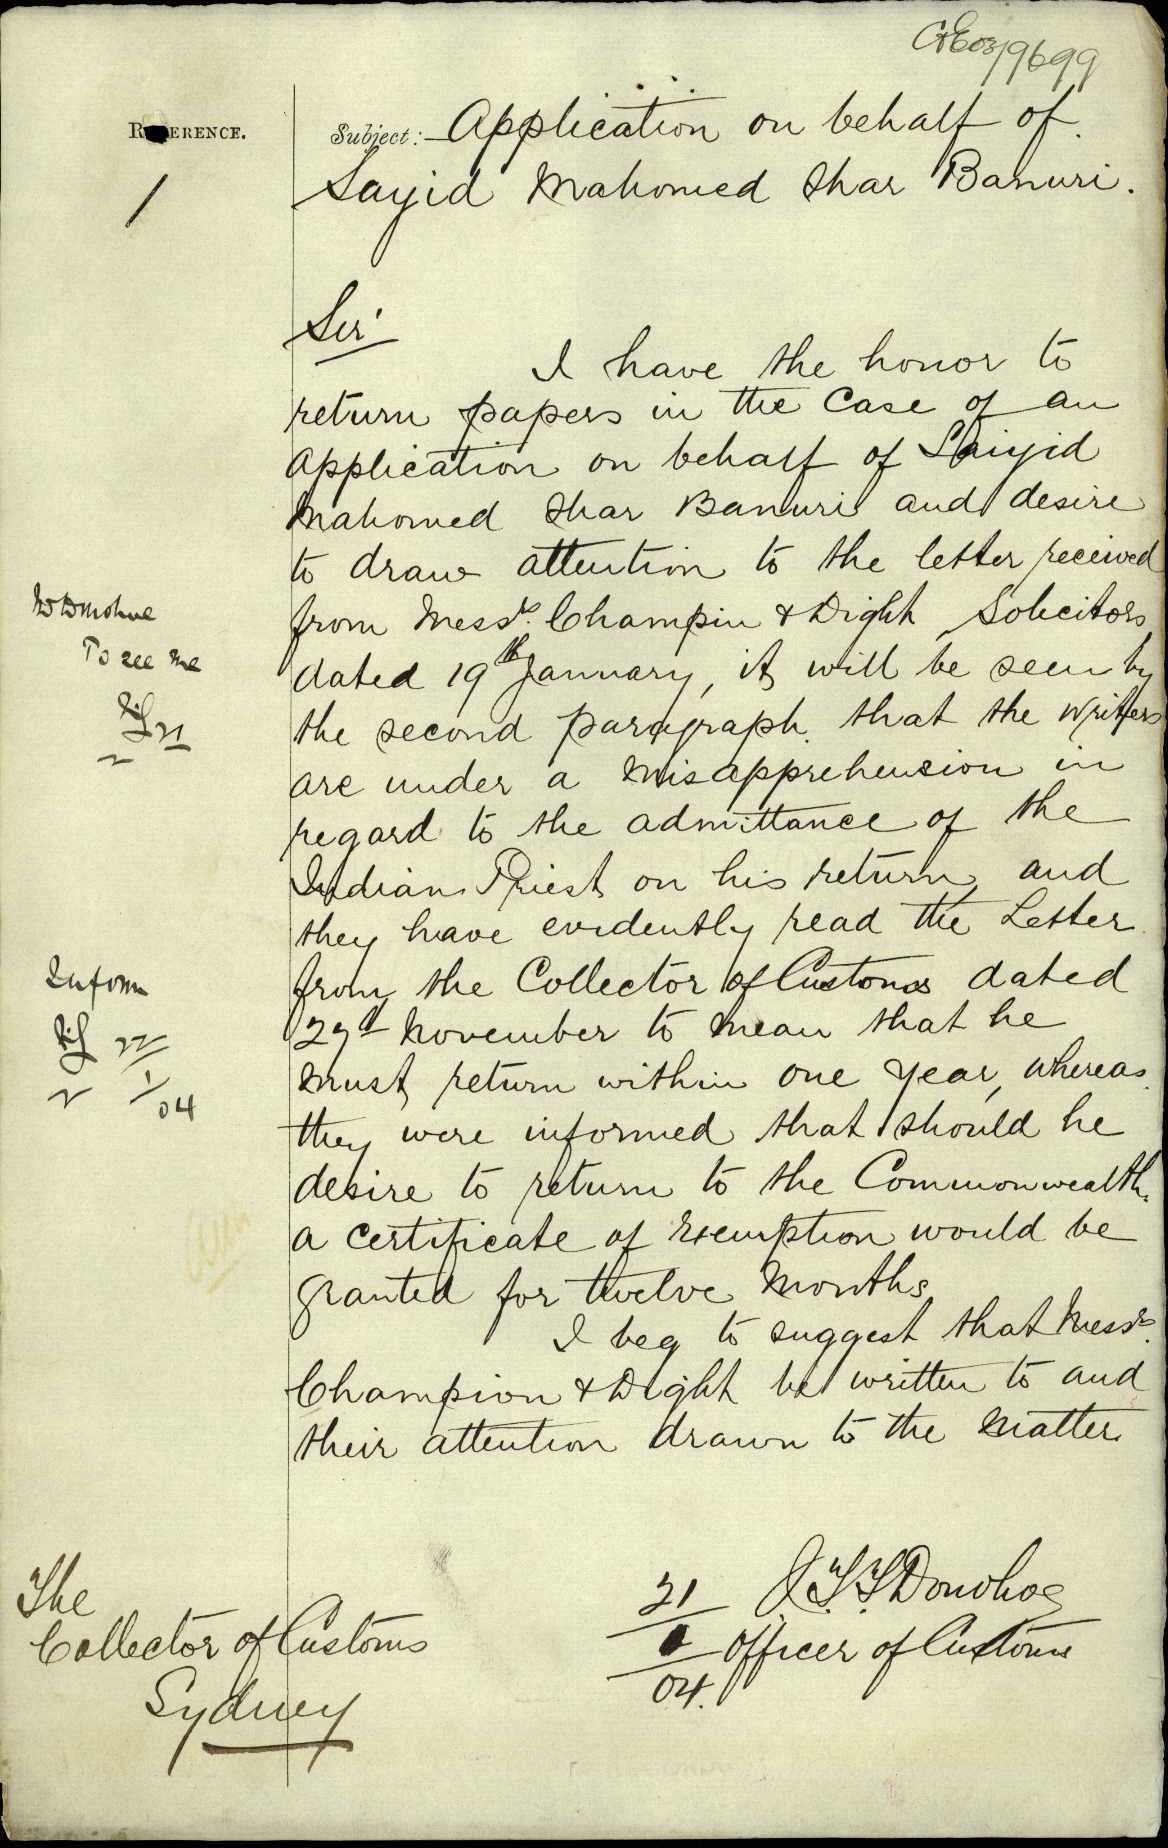 03/9699
REFERENCE.
Subject:- Application on behalf of
Sayid Mahomed Shar Banuri.
1
Sir
I have the honor to
return papers in the Case of an
Application on behalf of Saiyid
Mahomed Shar Banuri and desire
to draw attention to the letter received
from Messrs. Champin & Dight Solicitors
dated 19th January, it will be seen by
the second paragraph that the writers
are under a misapprehension in
regard to the admittance of the
Indian Priest on his return, and
they have evidently read the Letter
from the Collector of Customs dated
27th November to mean that he
must return within one year, whereas
they were informed that should he
desire to return to the Commonwealth
a certificate of exemption would be
granted for twelve months
I beg to suggest that Messrs.
Champion & Dight be written to and
their attention drawn to the matter
Mr Donohue
To see me
21
Inform
22
1
04
The
Collector of Customs
Sydney
21
04.
Donohoe
Officer of Customs